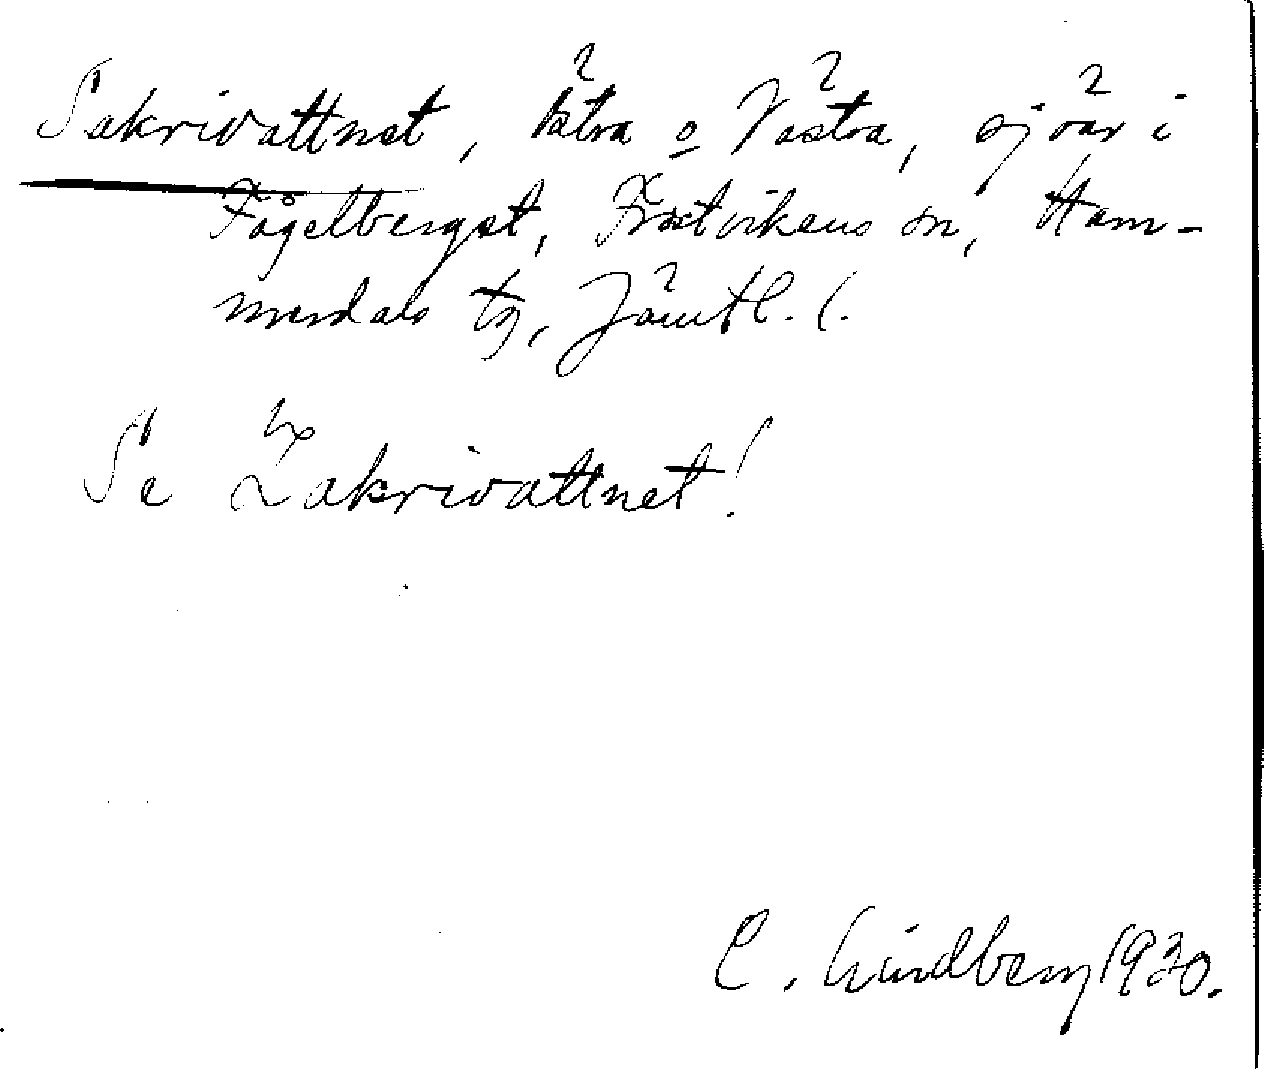 Sakrivattnet, Östra o Västra, sjöar i
Fågelberget, Frostvikens sn, Ham-
merdals tg, Jämtl. l.
Se Zakrivattnet!
C. Lindberg 1930.